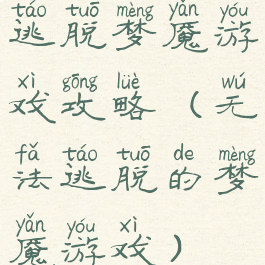 táo tuō mèng yǎn yóu
逃脱梦魇游
xì gōng lüè wú
戏攻略（无
fǎ táo tuō de mèng
法逃脱的梦
yǎn yóu xì
魇游戏）